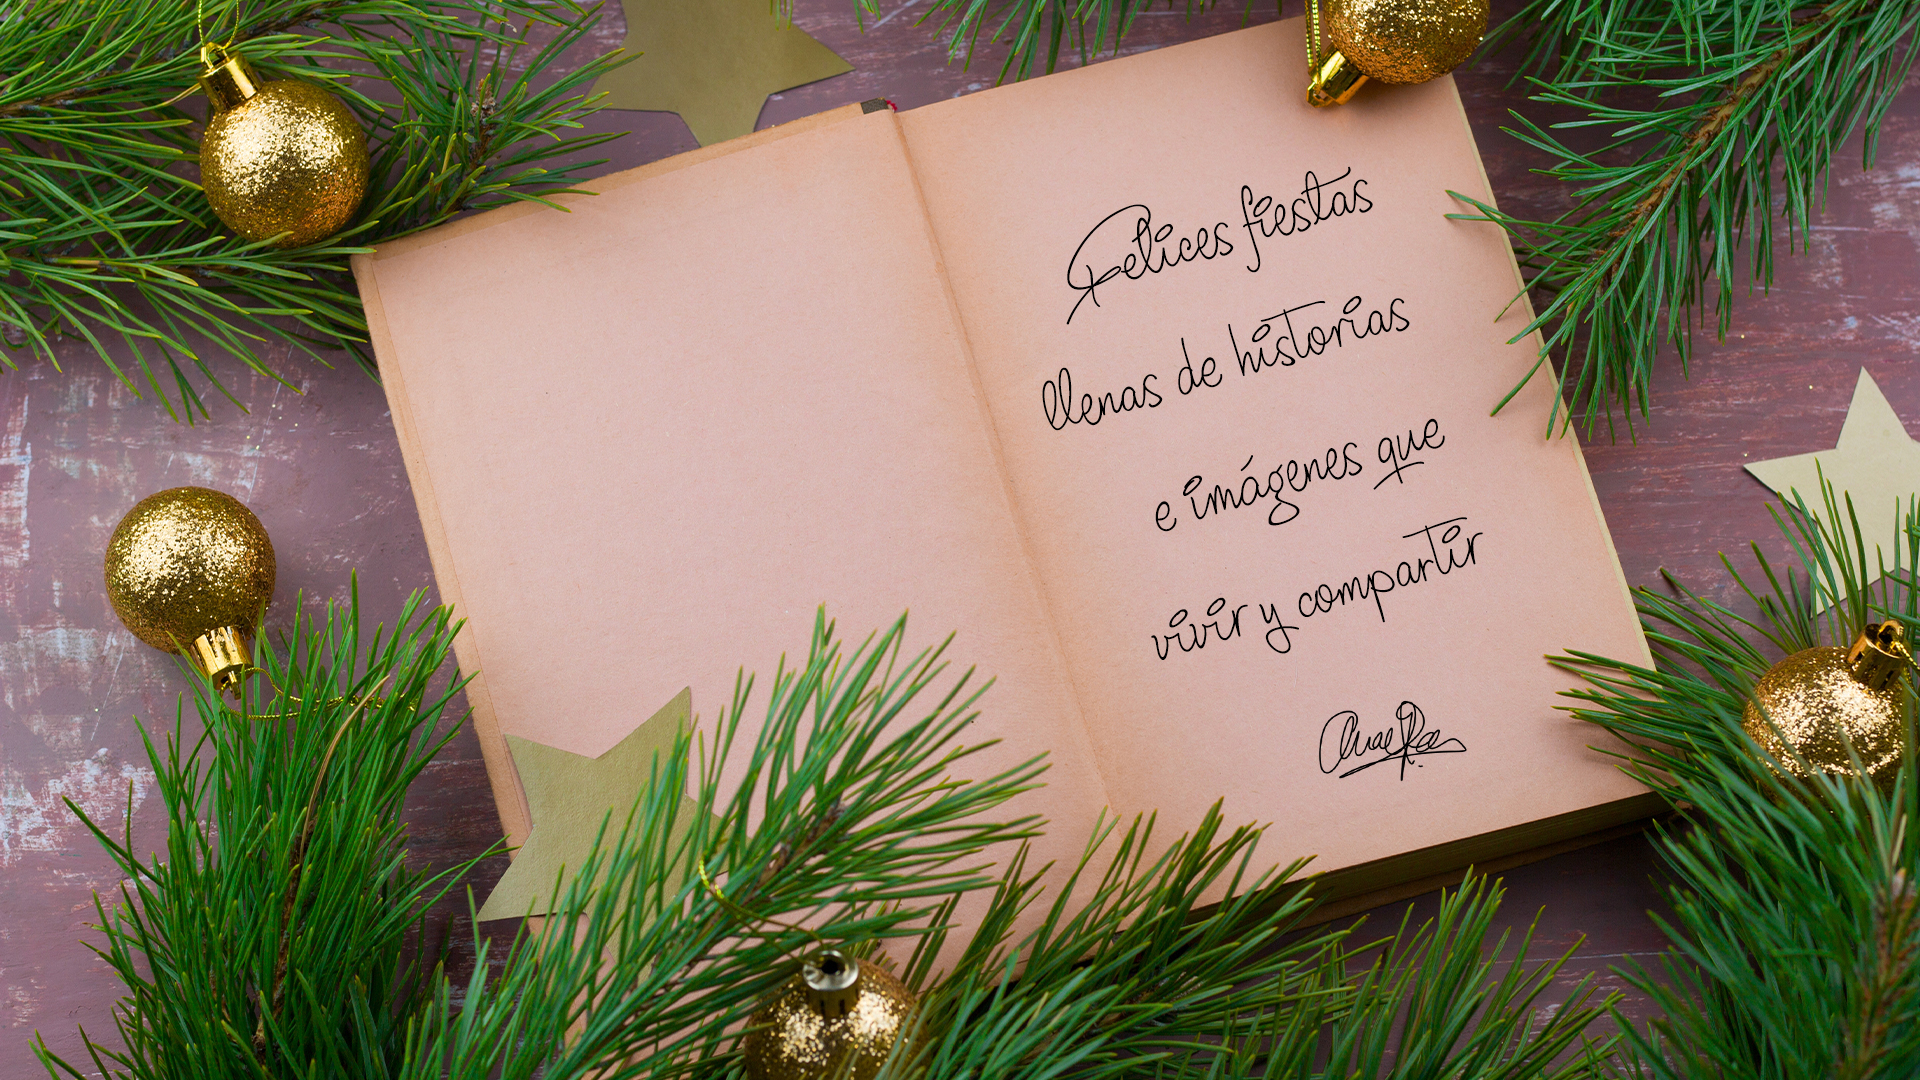 Felices fiestas
llenas de historias
e imágenes que
vivir y compartir